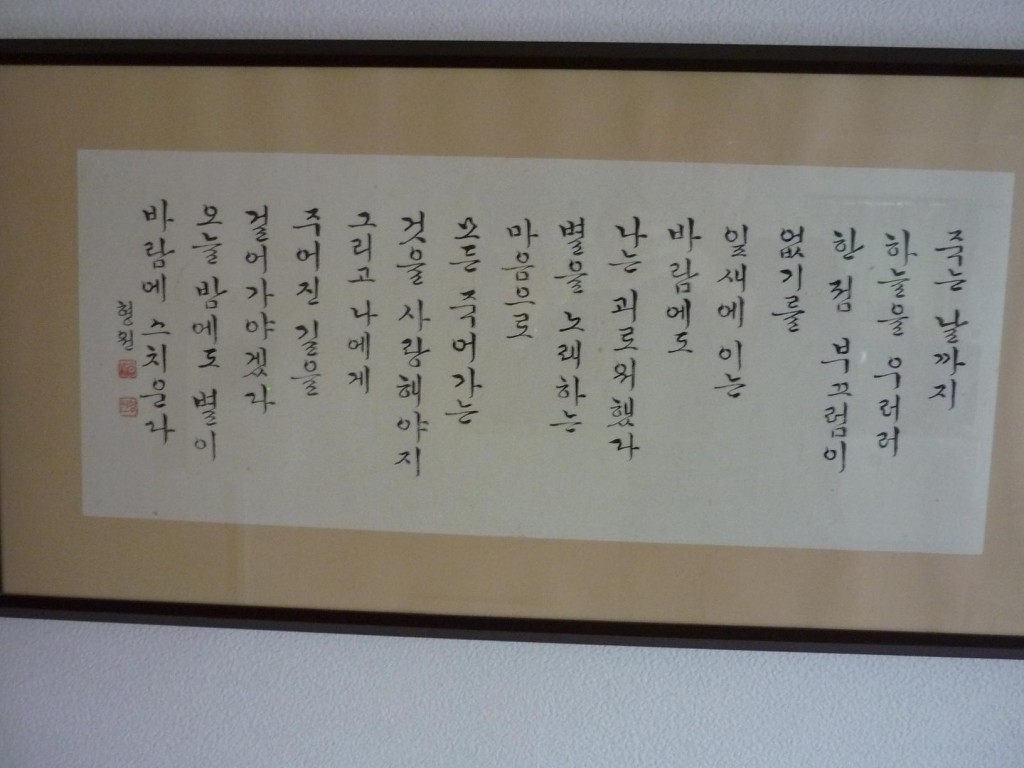 죽는 날까지
하늘을 우러러
한 점 부끄럼이
없기를
잎새에 이는
바람에도
나는 괴로워했다
별을 노래하는
마음으로
모든 죽어가는
것을 사랑해야지
그리고 나에게
주어진 길을
걸어가야겠다
오늘 밤에도 별이
바람에 스치운다
형원